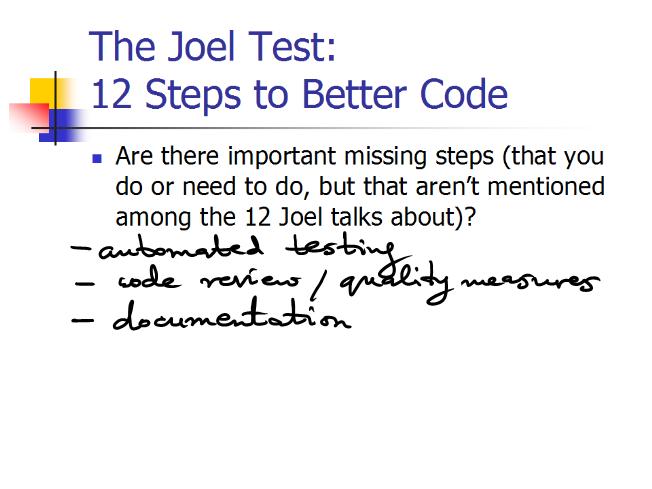 The Joel Test:
12 Steps to Better Code
Are there important missing steps (that you
do or need to do, but that aren't mentioned
among the 12 Joel talks about)?
- automated testing
- code review / quality measures
- documentation